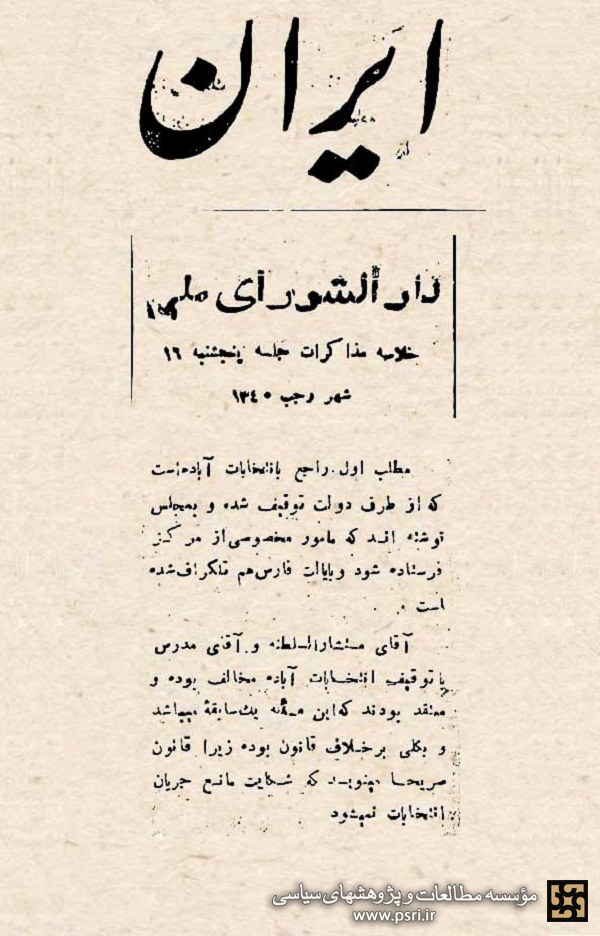 ایران
دار الشورای ملی
خلاصه مذاکرات جلسه پنجشنبه ١٦
شهر رجب ١٣٤٠
مطلب اول راجع بانتخابات آباده‌است
که از طرف دولت توقیف شده و بمجلس
نوشته اند که مامور مخصوصی از مرکز
فرستاده شود و بایالت فارس هم تلگراف شده
است .
آقای مستشارالسلطنه و آقای مدرس
با توقیف انتخابات آباده مخالف بوده و
معتقد بودند که این مسئله یک سابقهٔ میباشد
و بکلی برخلاف قانون بوده زیرا قانون
صریحا میگوید که شکایت مانع جریان
انتخابات نمیشود
مؤسسه مطالعات و پژوهشهای سیاسی
www.psri.ir